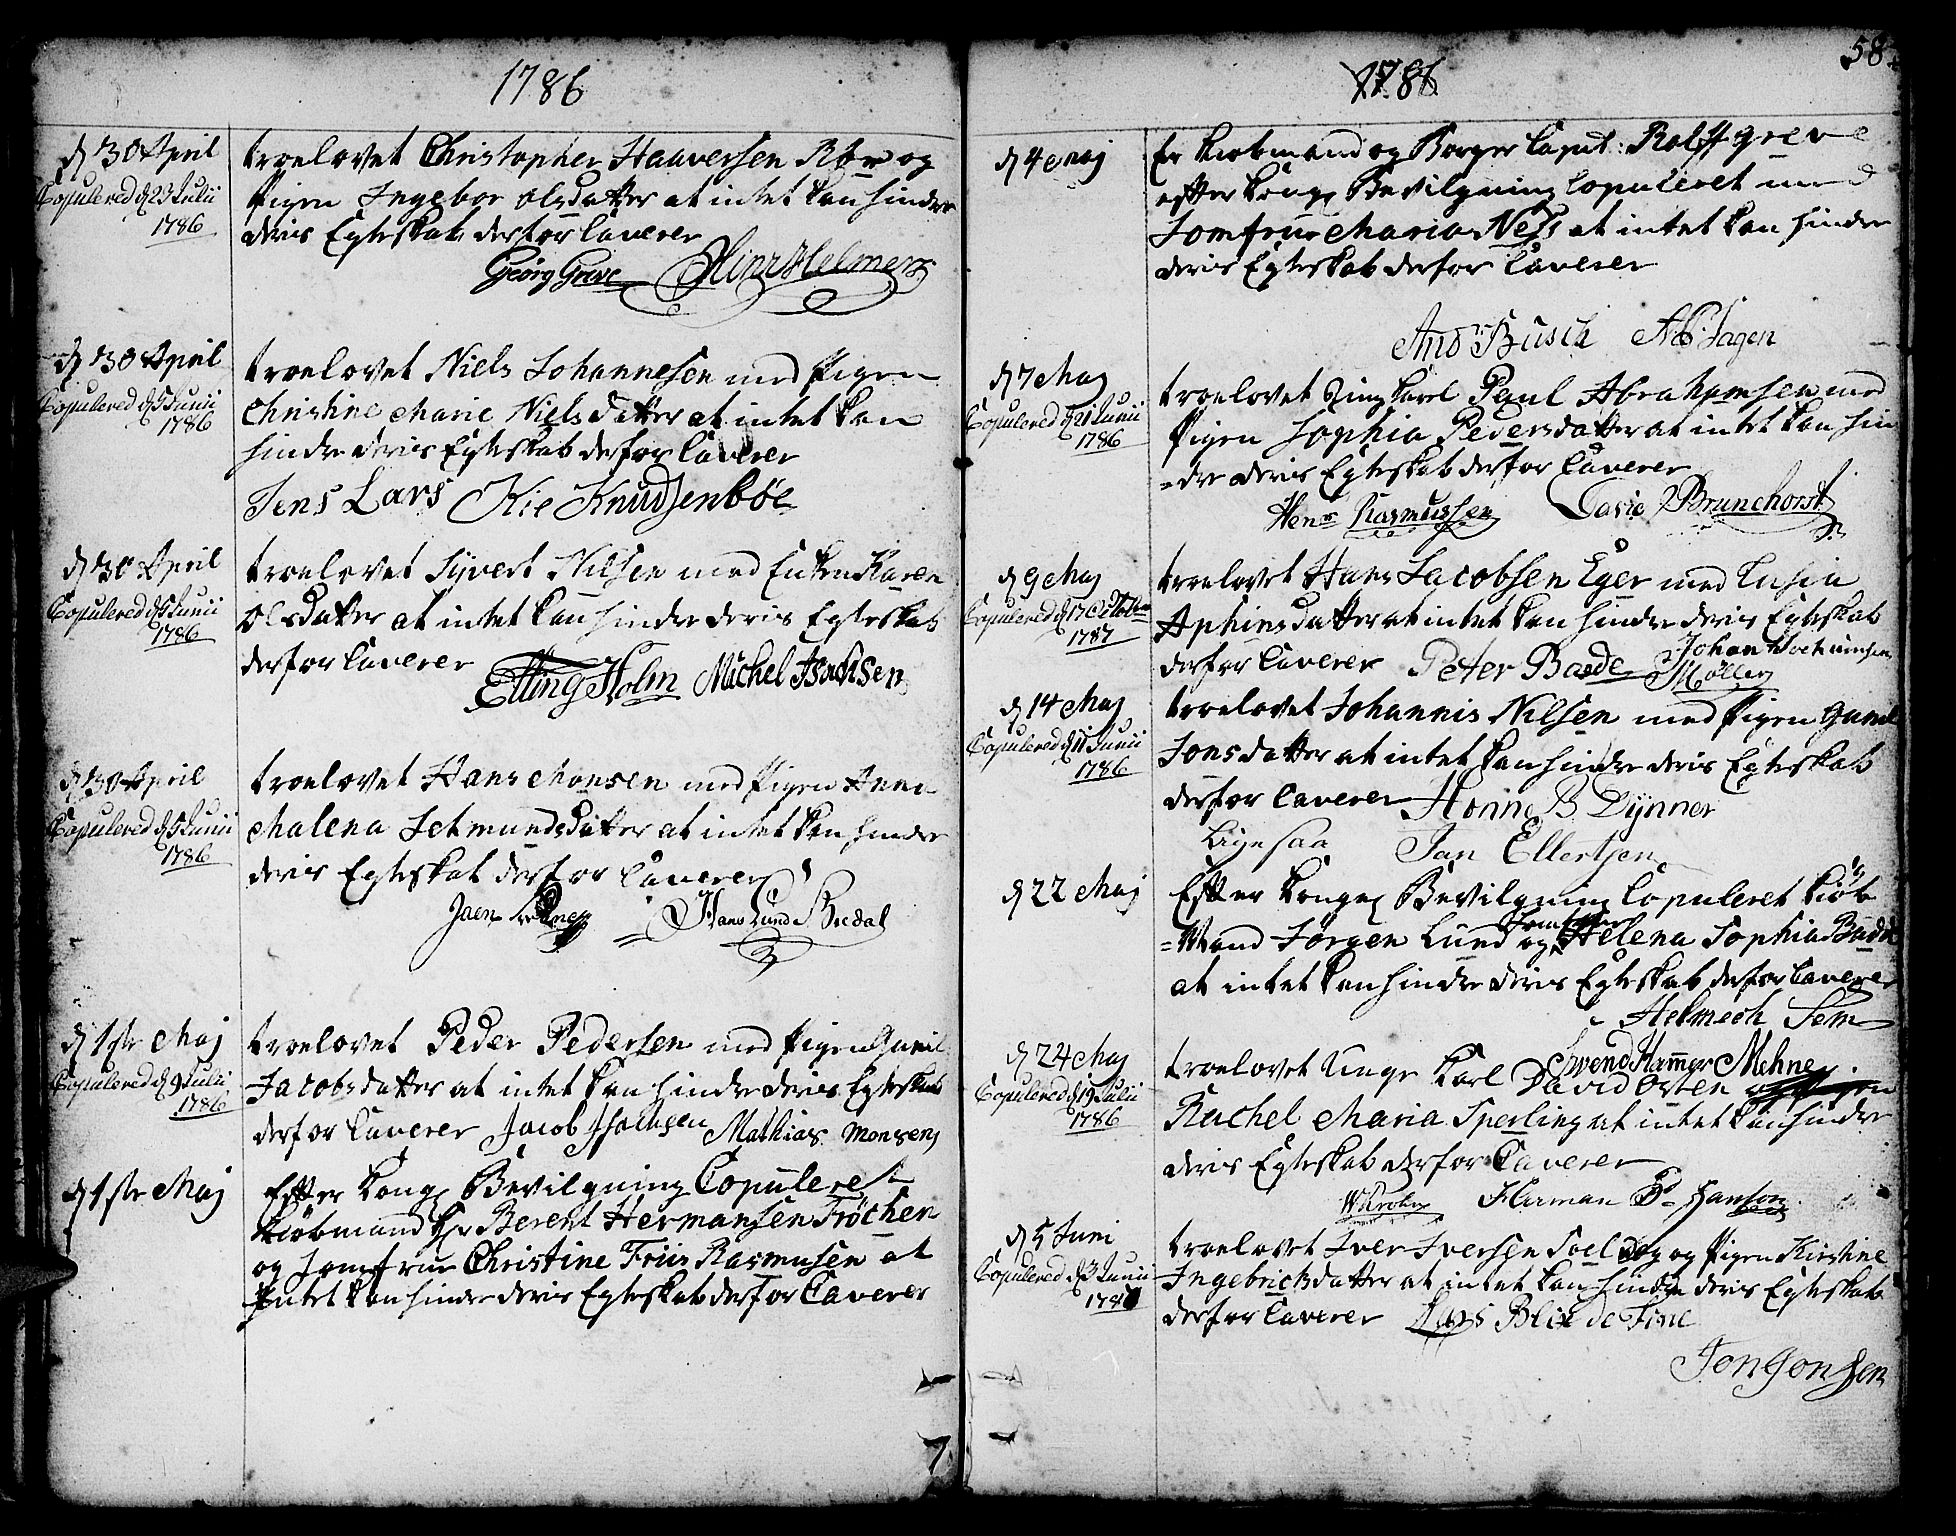 1786
d 30 April
Copulered d 23 Julii
1786
troelovet Christopher Haaversen Røn og
Pigen Ingebor Olsdatter at intet kan hindre
deris Egteskab derfor Caverer
Georg Greve Hinr Helmers
d 30 April
Copulered d 5 Junii
1786
troelovet Niels Johannesen med Pigen
Christine Marie Nielsdatter at intet kan
hindre deris Egteskab derfor Caverer
Jens Lars Kie Knudsenbøe
d 30 April
Copulered d 5 Junii
1786
troelovet Syvert Nilsen med Enken Karen
Olsdatter at intet kan hindre deris Egteskab
derfor Caverer
Elling Holm Michel Isachsen
d 30 April
Copulered d 5 Junii
1786
troelovet Hans Monsen med Pigen Anne
Malena Setmundsdatter at intet kan hindre
deris Egteskab derfor Caverer
Jaen Hans Lund Bredal
d 1ste Maj
Copulered d 9 Julii
1786
troelovet Peder Pedersen med Pigen Gunil
Jacobsdatter at intet kan hindre deris Egteskab
derfor Caverer Jacob Isachsen Mathias Monsen
d 1ste Maj
Efter kong Bevilgning Copuleret
Kiøbmand Hr Berent Hermansen Frøchen
og Jomfrue Christine Friis Rasmusen at
Intet kan hindre deris Egteskab derfor Caverer
58
1786
d 4 Maj
Er Kiobmand og Borger Capit: Rolff Greve
efter kong Bevilgning Copuleret med
Jomfrue Maria Ness at intet kan hindre
deris Egteskab derfor Caverer
And Busch AB Fagen
d 7 Maj
Copulered d 21 Junii
1786
troelovet Ung karl Paul Abrahamsen med
Pigen Sophia Pedersdatter at intet kan hin
=dre deris Egteskab derfor Caverer
Hens Rasmussen David Brunchorst
d 9 Maj
Copulered d 17 Octobr
1787
troelovet Hans Jacobsen Eger med Lusia
Aphinsdatter at intet kan hindre deris Egteskab
derfor Caverer Peter Baade Johan
Møller
d 14 Maj
Copulered d 11 Junii
1786
troelovet Johannis Nilsen med Pigen Gunil
Jonsdatter at intet kan hindre deris Egteskab
derfor Caverer Honne B. Dynner
Ligesaa Jan Ellertsen
d 22 Maj
Efter konge Bevilgning Copuleret kiøb
=Mand Jørgen Lund og Jomfrue Helena Sophia Budde
at intet kan hindre deris Egteskab derfor Caverer
Helmech Sem
Svend Hammer Mehne
d 24 Maj
Copulered d 19 Julii
1786
troelovet Unge Karl David Osten
Rachel Maria Sperling at intet kan hindre
deris Egteskab derfor Caverer
Harman Hanson
d 5 Juni
Copulered d 3 Junii
178
troelovet Iver Iversen Soeldog og Pigen Kirstine
Ingebricksdatter at intet kan hindre deris Egteskab
derfor Caverer Lars Blix de Fine
Jon Jonsen